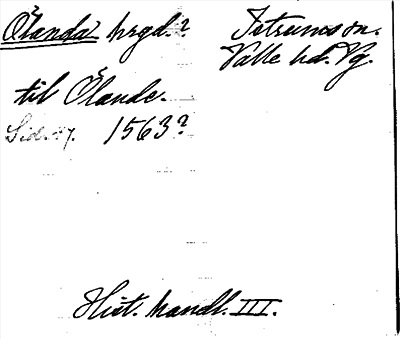 Ölanda? hrgd.? Istrums sn.
Valle hd. Vg.
til Ölande.
Sid. 47. 1563?
Hist. handl. III.